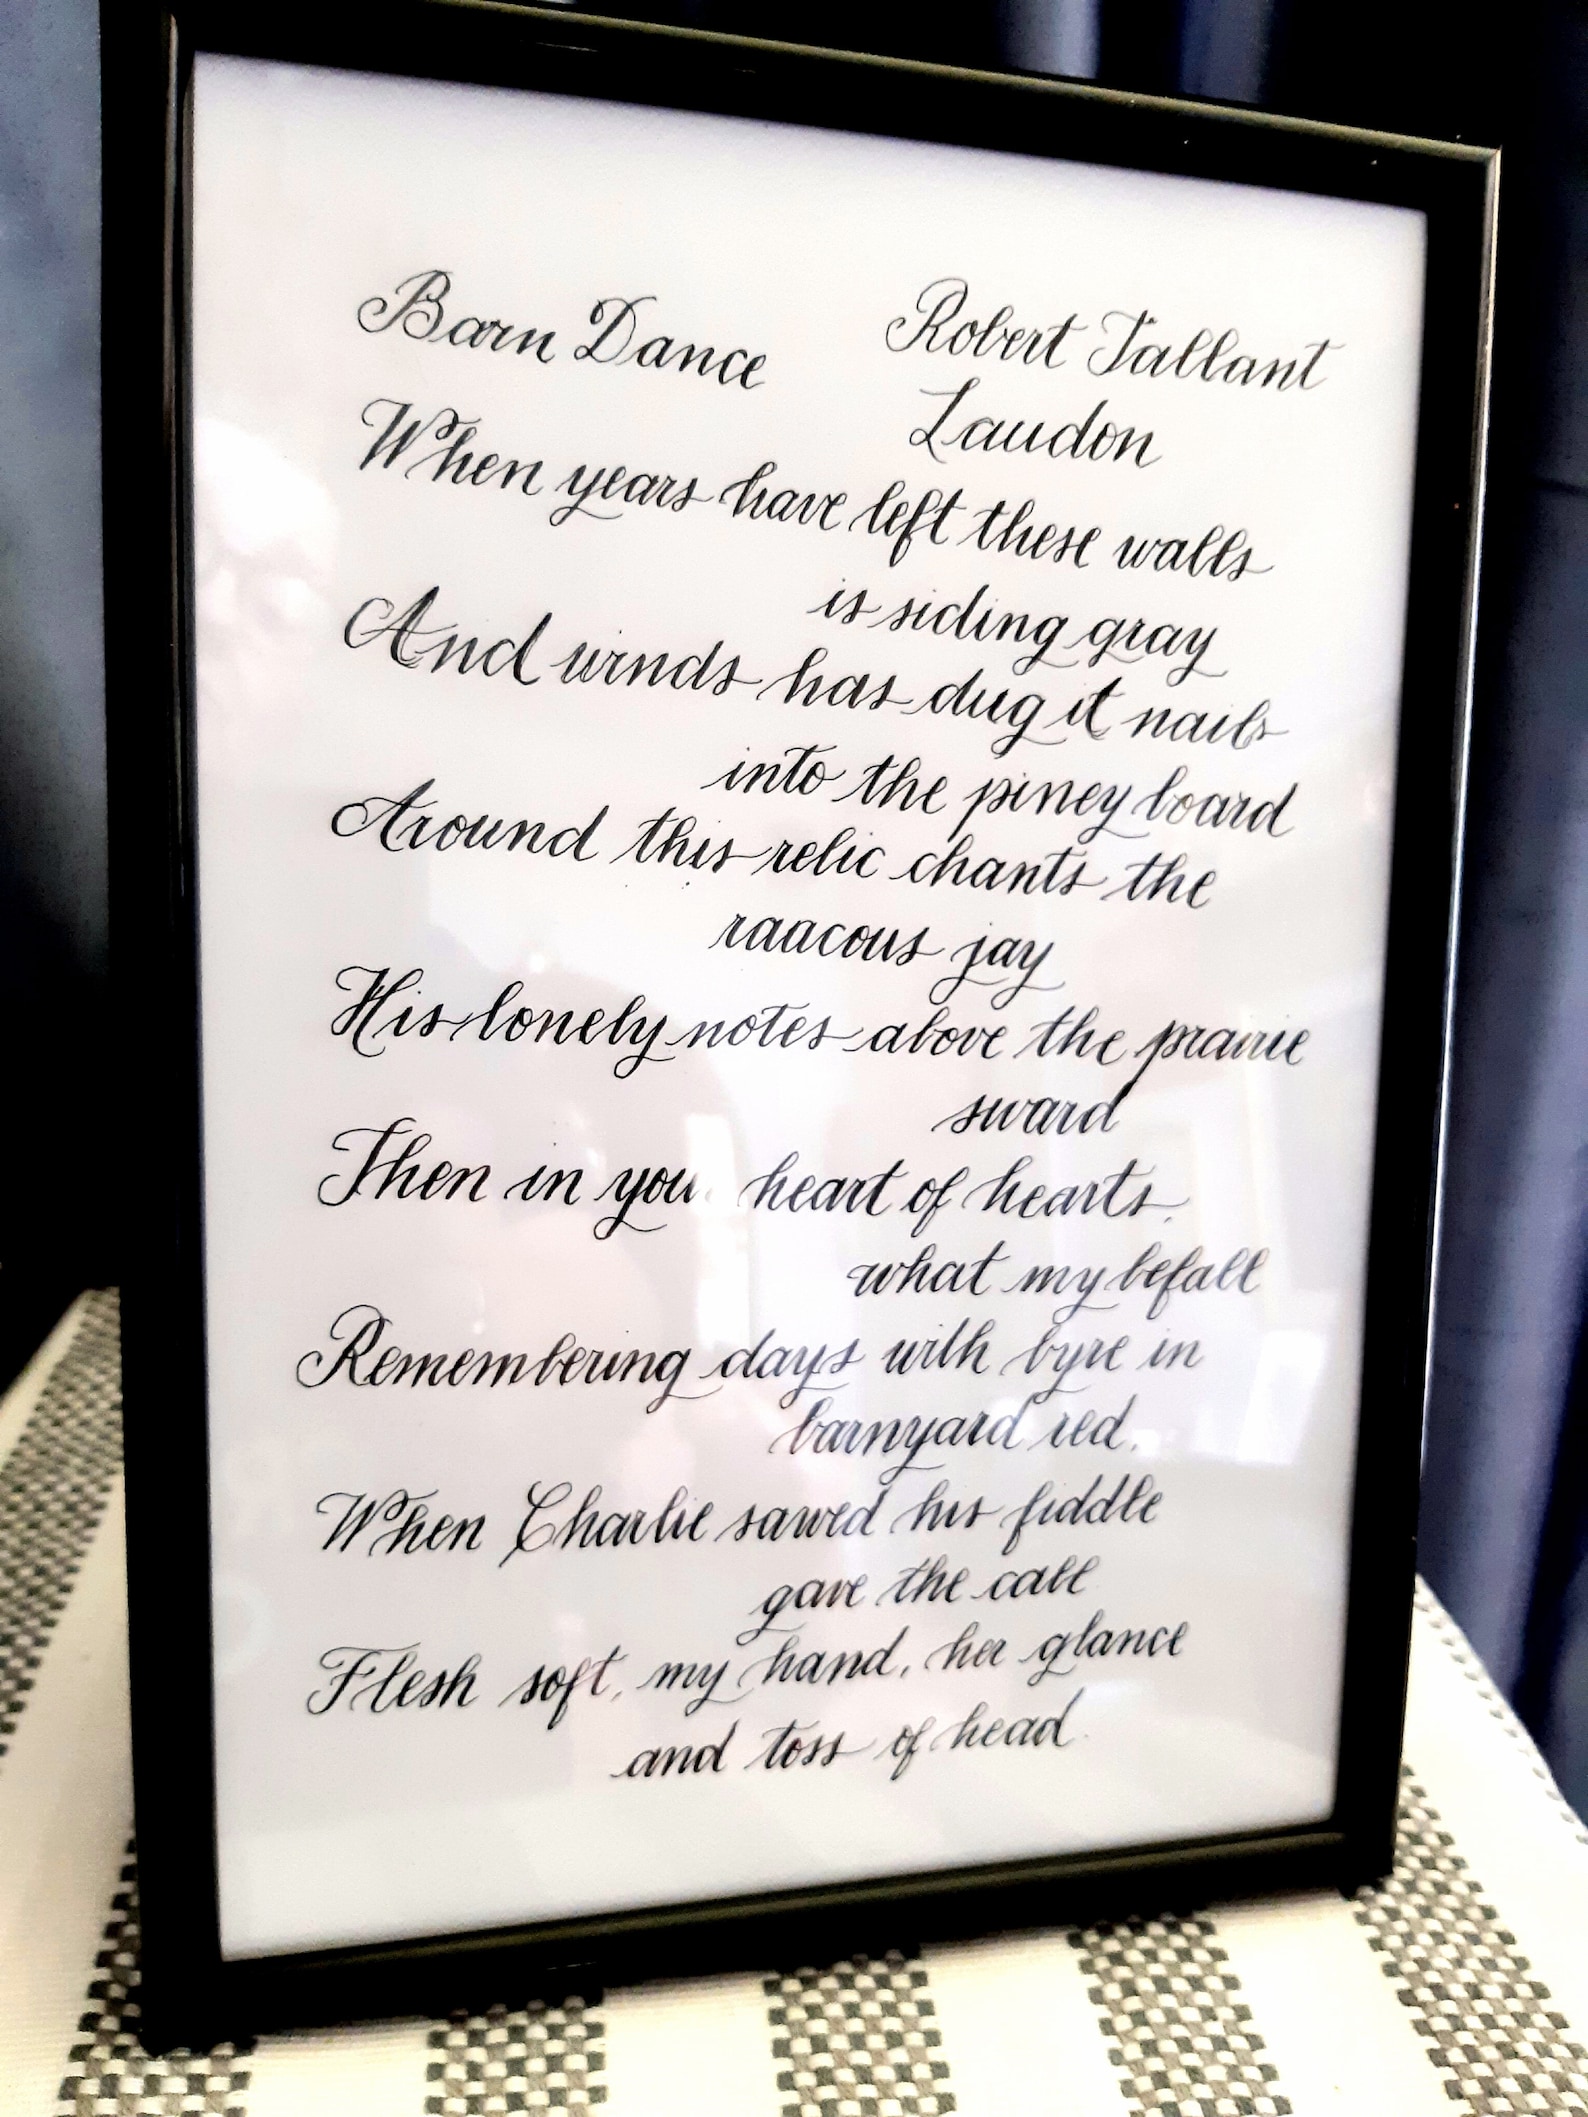 Barn Dance Robert Tallant
Laudon
When years have left these walls
is siding gray
And winds has dug it nails
into the piney board
Around this relic chants the
raacous jay
His lonely notes above the prairie
sward
Then in your heart of hearts,
what my befall
Remembering days with byre in
barnyard red.
When Charlie sawed his fiddle
gave the call
Flesh soft, my hand, her glance
and toss of head.